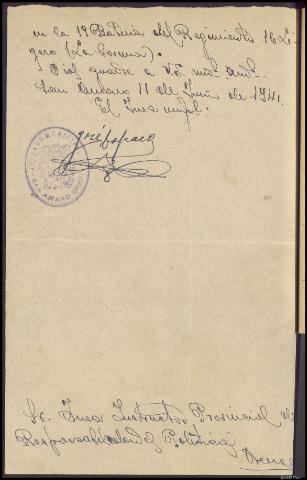 en la 1ª Bateria del Regimiento 16 Li
gero (La Coruña).
Dios guarde a Vd. ms. ans.
San Amaro 11 de Junio de 1.941.
El Juez mupl.
SAN AMARO
Sr. Juez Instructor Provincial de
Responsabilidades Politicas
Orense